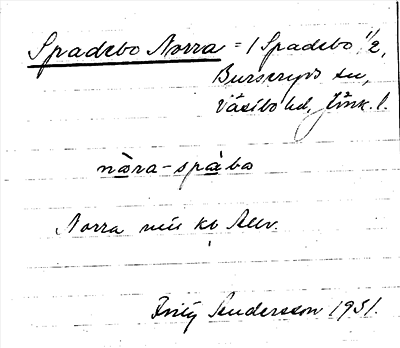 Spadebo Norra = 1 Spadebo 1/2,
Burseryds sn,
Västbo hd, Jönk. l.
nòra-spàbo
Norra
Fritz Andersson 1931.